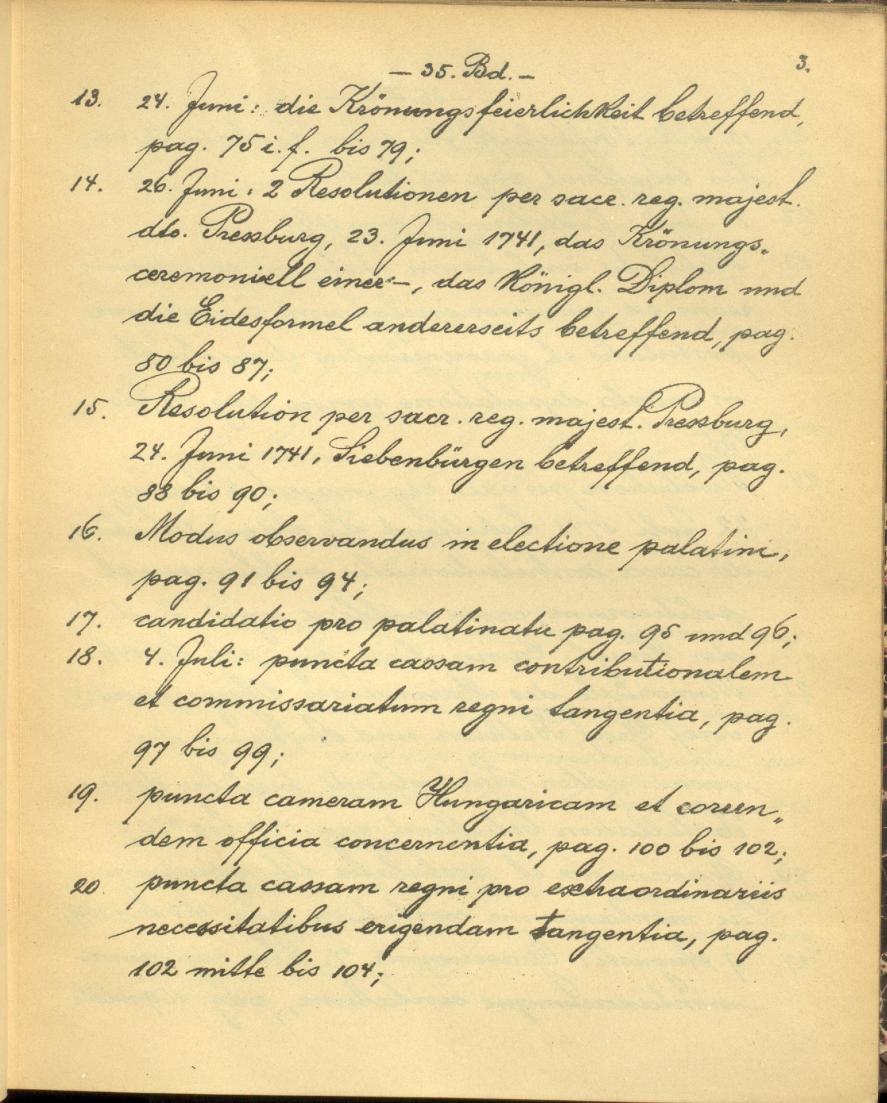 — 35. Bd. —
3.
13. 24. Juni: die Krönungsfeierlichkeit betreffend,
pag. 75 i. f. bis 79;
14. 26. Juni: 2 Resolutionen per sacr. reg. majest.
dto. Pressburg, 23. Juni 1741, das Krönungs-
ceremoniell einer-, das Königl. Diplom und
die Eidesformel andererseits betreffend, pag.
80 bis 87;
15. Resolution per sacr. reg. majest. Pressburg,
24. Juni 1741, Siebenbürgen betreffend, pag.
88 bis 90;
16. Modus observandus in electione palatini,
pag. 91 bis 94;
17. candidatio pro palatinatu pag. 95 und 96;
18. 4. Juli: puncta cassam contributionalem
et commissariatum regni tangentia, pag.
97 bis 99;
19. puncta cameram Hungaricam et eoreun„
dem officia concernentia, pag. 100 bis 102;
20 puncta cassam regni pro extraordinariis
necessitatibus erigendam tangentia, pag.
102 mitte bis 104;